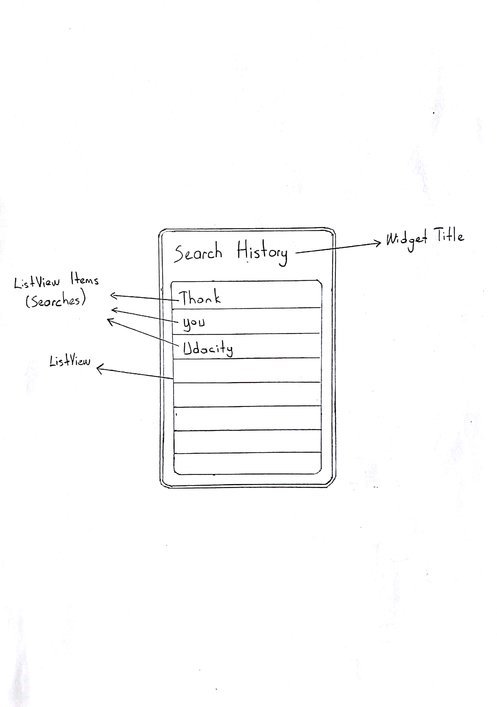 Search History
Widget Title
ListView Items
(Searches)
Thank
you
Udacity
ListView